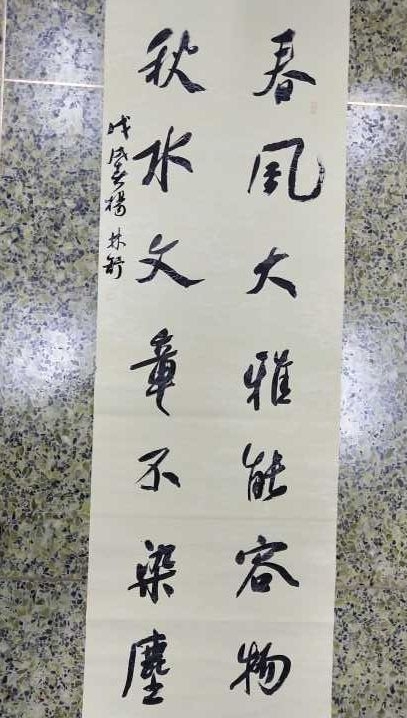 春风大雅能容物
秋水文章不染尘
戊戌春杨林舒